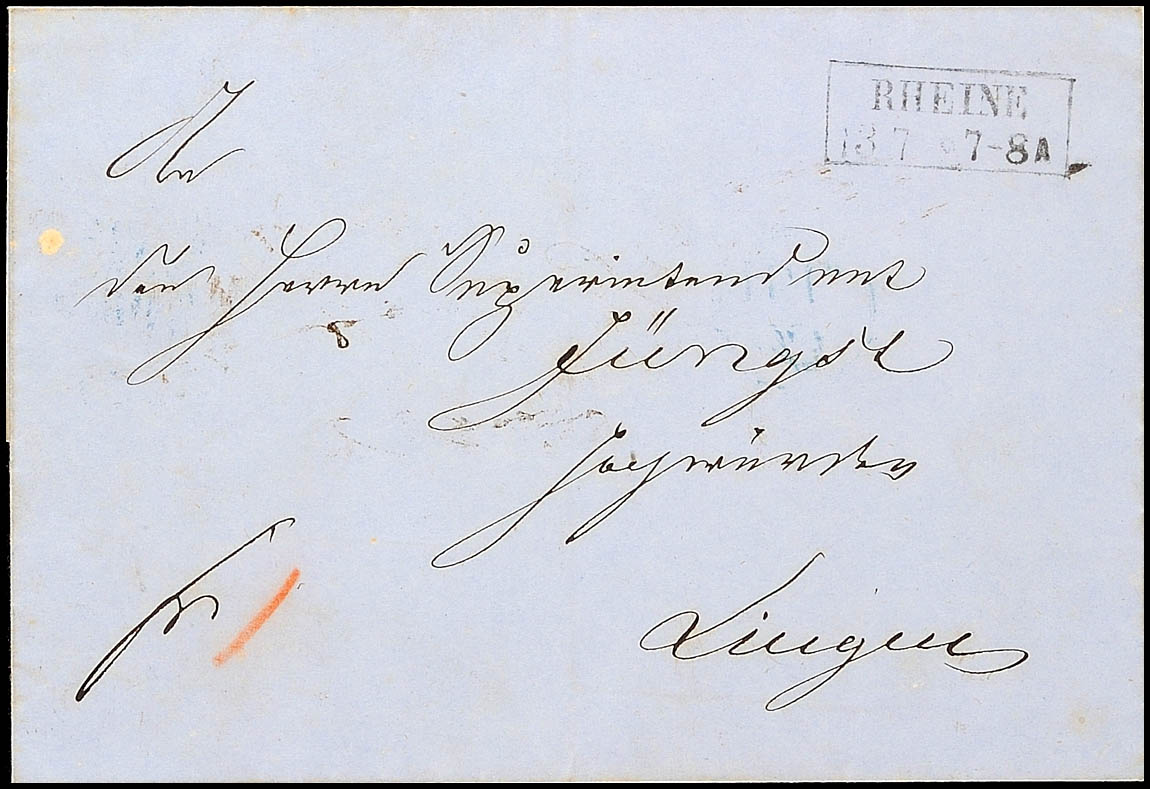 RHEINE
13 7 7-8A
An
den Herrn Superintendent
Jüngst
Hochwürden
Lingen
fr